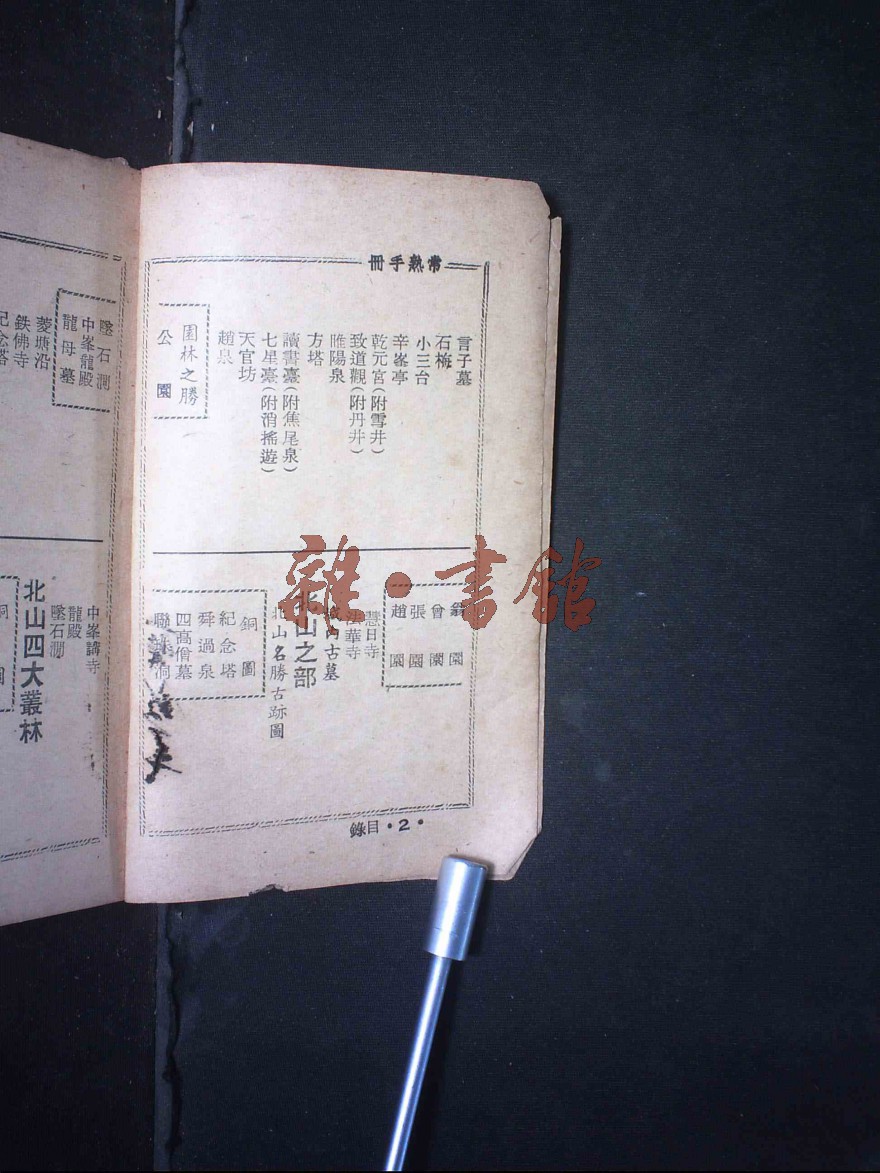 常熟手冊
言子墓
石梅
小三台
辛峯亭
乾元宮(附雪井)
致道觀(附丹井)
睢陽泉
方塔
讀書臺(附焦尾泉)
七星臺(附消搖遊)
天官坊
趙泉
園林之勝
公園
翁園
曾園
張園
趙園
慧日寺
法華寺
城內古墓
北山之部
北山名勝古跡圖
銅圖
紀念塔
舜過泉
四高僧墓
目錄・2・
墜石澗
中峯龍殿
龍母墓
菱塘沿
鉄佛寺
紀念塔
中峯講寺
龍殿
墜石澗
北山四大叢林
雜・書館